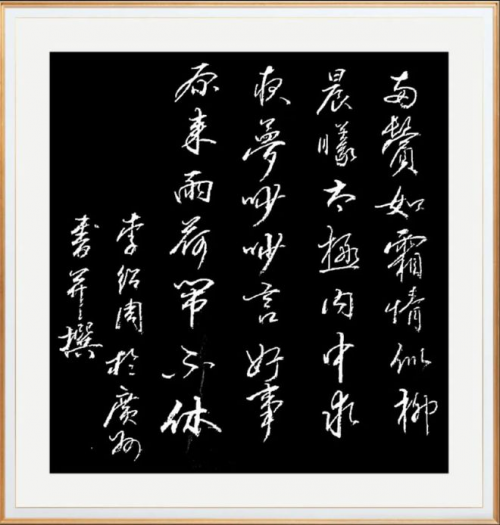 两鬓如霜情似柳
晨曦太極内中求
夜夢吵吵言好事
原来雨荷闹不休
李绍周於廣州
書并撰